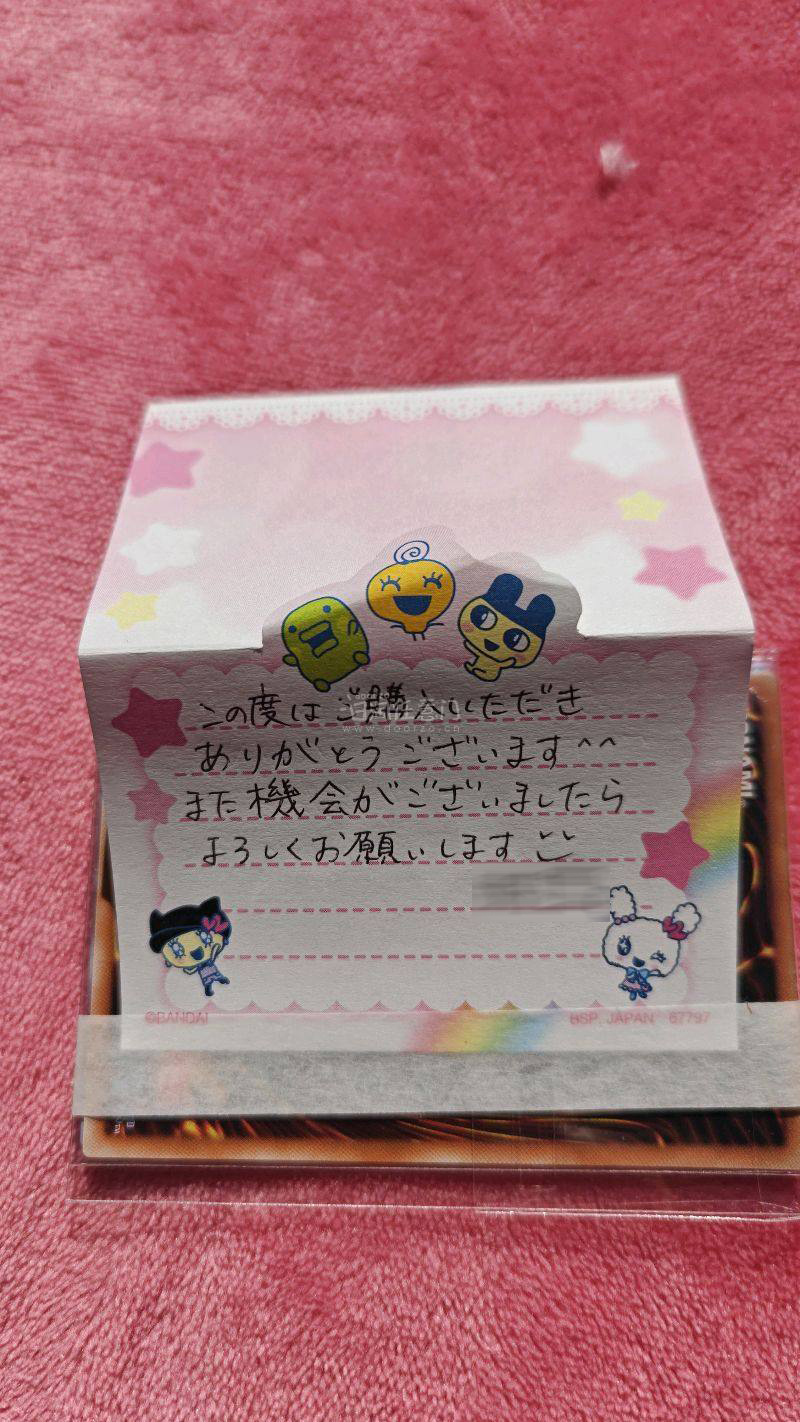 この度はご購入いただき
ありがとうございます^^
また機会がございましたら
よろしくお願いします
©BANDAI
BSP, JAPAN 67797
www.doorzo.cn